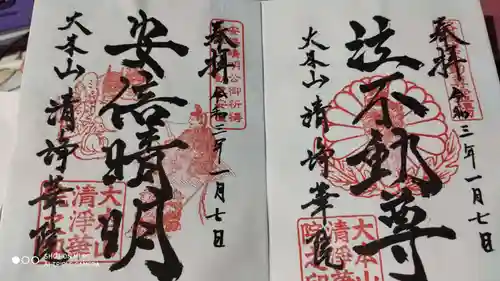 奉拝 令和三年一月七日
安倍晴明
大本山 清浄華院
大本山
清浄華
院之印
奉拝 令和三年一月七日
泣不動尊
大本山 清浄華院
大本山
清浄華
院之印